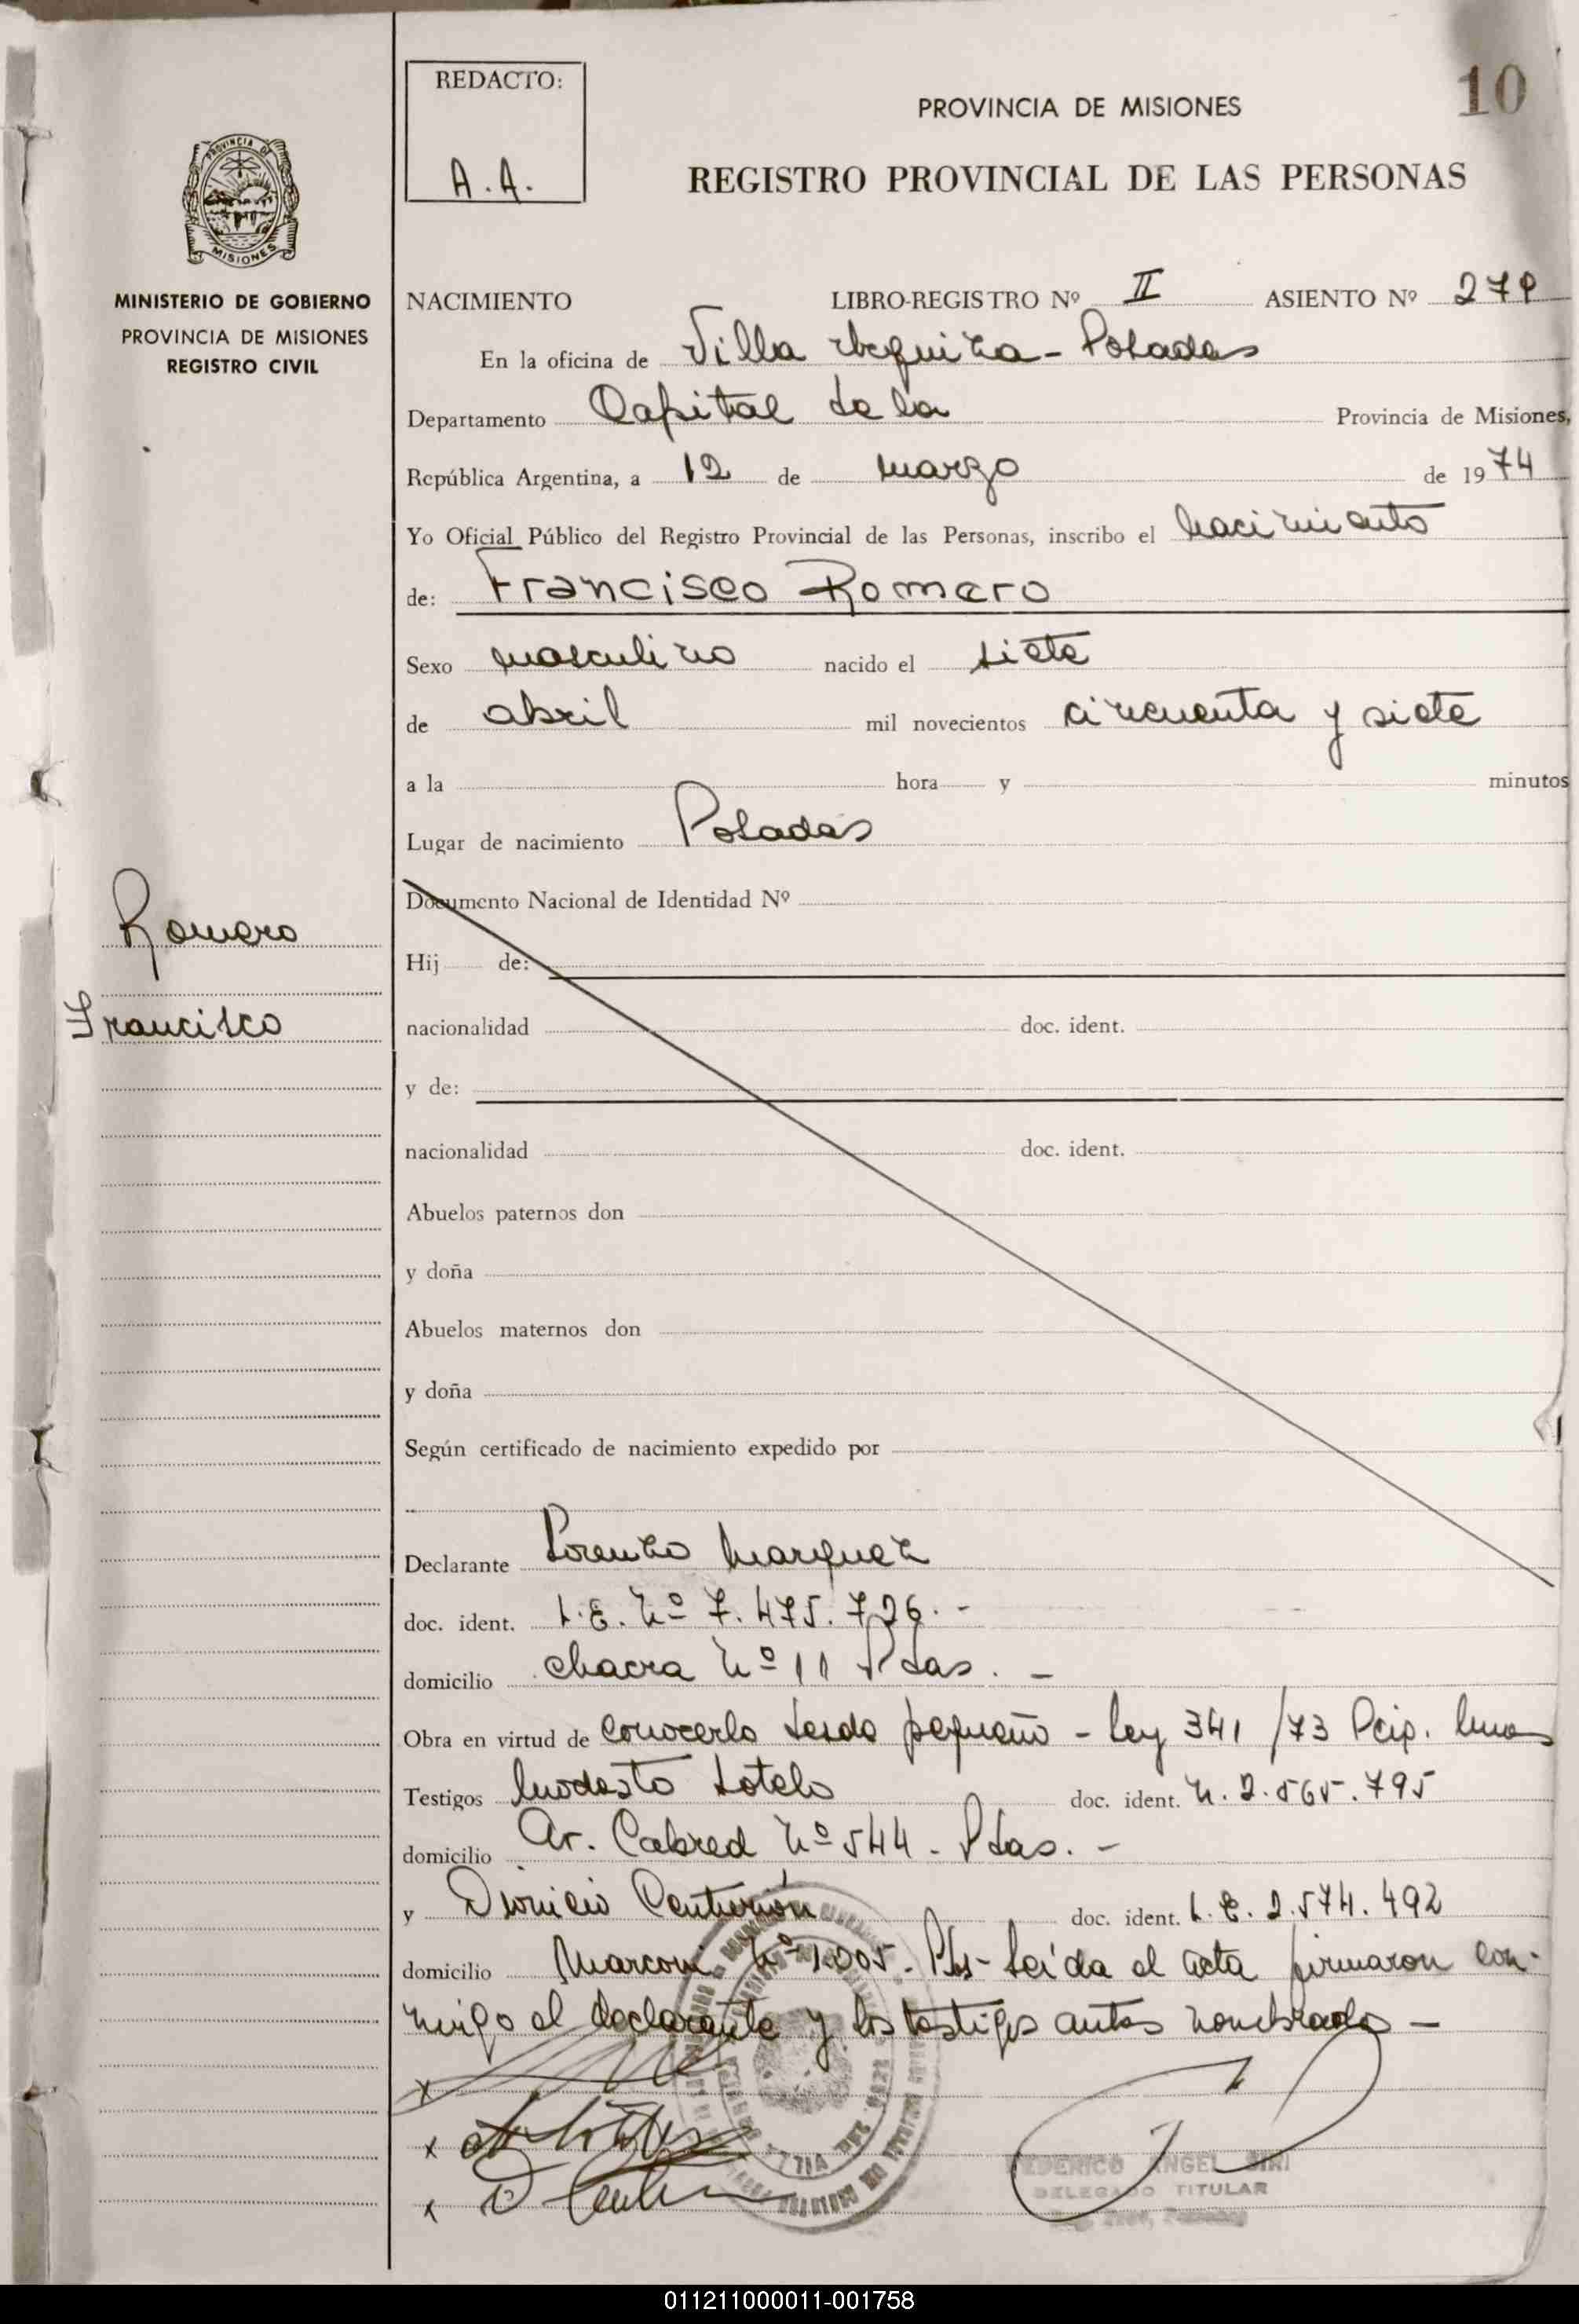 REDACTO:
A.A.
10
PROVINCIA DE MISIONES
REGISTRO PROVINCIAL DE LAS PERSONAS
PROVINCIA DE
MISIONES
MINISTERIO DE GOBIERNO
PROVINCIA DE MISIONES
REGISTRO CIVIL
NACIMIENTO LIBRO-REGISTRO Nº II ASIENTO Nº
En la oficina de Villa Urquiza - Posadas
Departamento Capital de la Provincia de Misiones,
República Argentina, a 12 de marzo de 1974
Yo Oficial Público del Registro Provincial de las Personas, inscribo el nacimiento
de: Francisco Romero
Sexo masculino nacido el siete
de abril mil novecientos cincuenta y siete
a la hora y minutos
Lugar de nacimiento Posadas
Documento Nacional de Identidad Nº
Romero
Hij de:
Francisco
nacionalidad doc. ident.
y de:
nacionalidad doc. ident.
Abuelos paternos don
y doña
Abuelos maternos don
y doña
Según certificado de nacimiento expedido por
Declarante Lorenzo Marquez
doc. ident. L.E. Nº 7.475.726.-
domicilio chacra Nº 11 Pdas. -
Obra en virtud de conocerlo desde pequeño - Ley 341/73 Pcip.
Testigos Modesto Sotelo doc. ident. M. 2.565.795
domicilio Av. Cabred Nº 544 - Pdas. -
y Dionicio Centurión doc. ident. L.E. 2.574.492
domicilio Marconi Nº 1.005. Pds - Leída el acta firmaron con-
migo el declarante y los testigos antes nombrados -
x
x
x
FEDERICO ANGEL SIRI
DELEGADO TITULAR
011211000011-001758